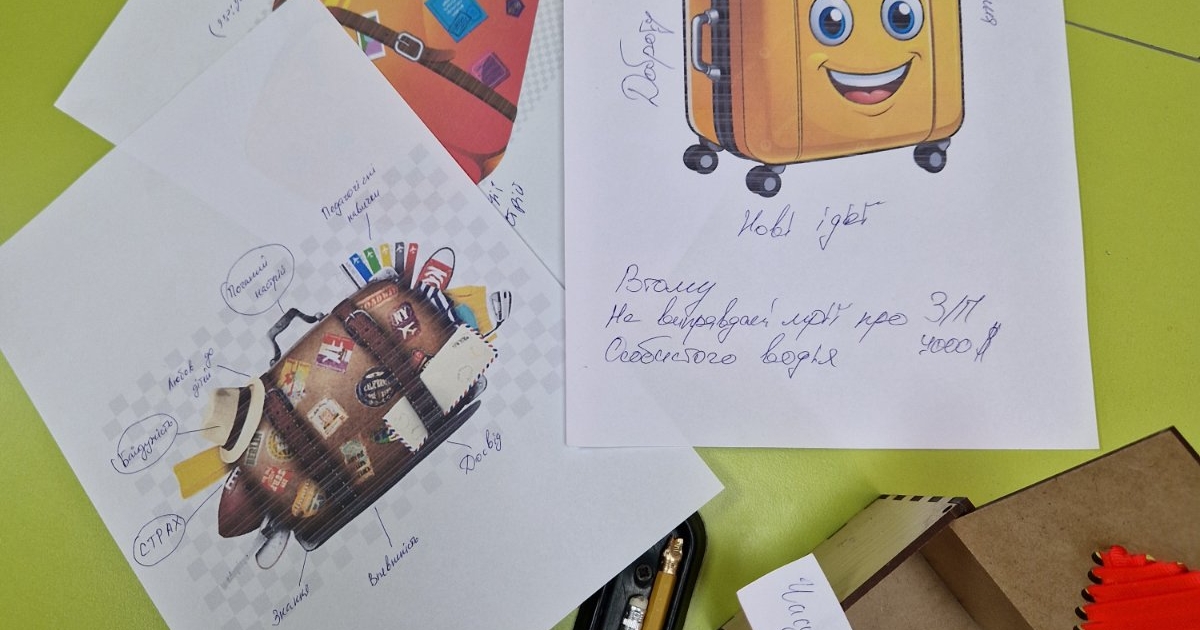 Педагогічні
навички
Поганий
настрій
Любов до
дітей
Байдужість
СТРАХ
Знання
Впевненість
Досвід
NY
CALIFORNIA
Доброту
Нові ідеї
Втому
Не виправдані мрії про З/П
4000 $
Особистого водія